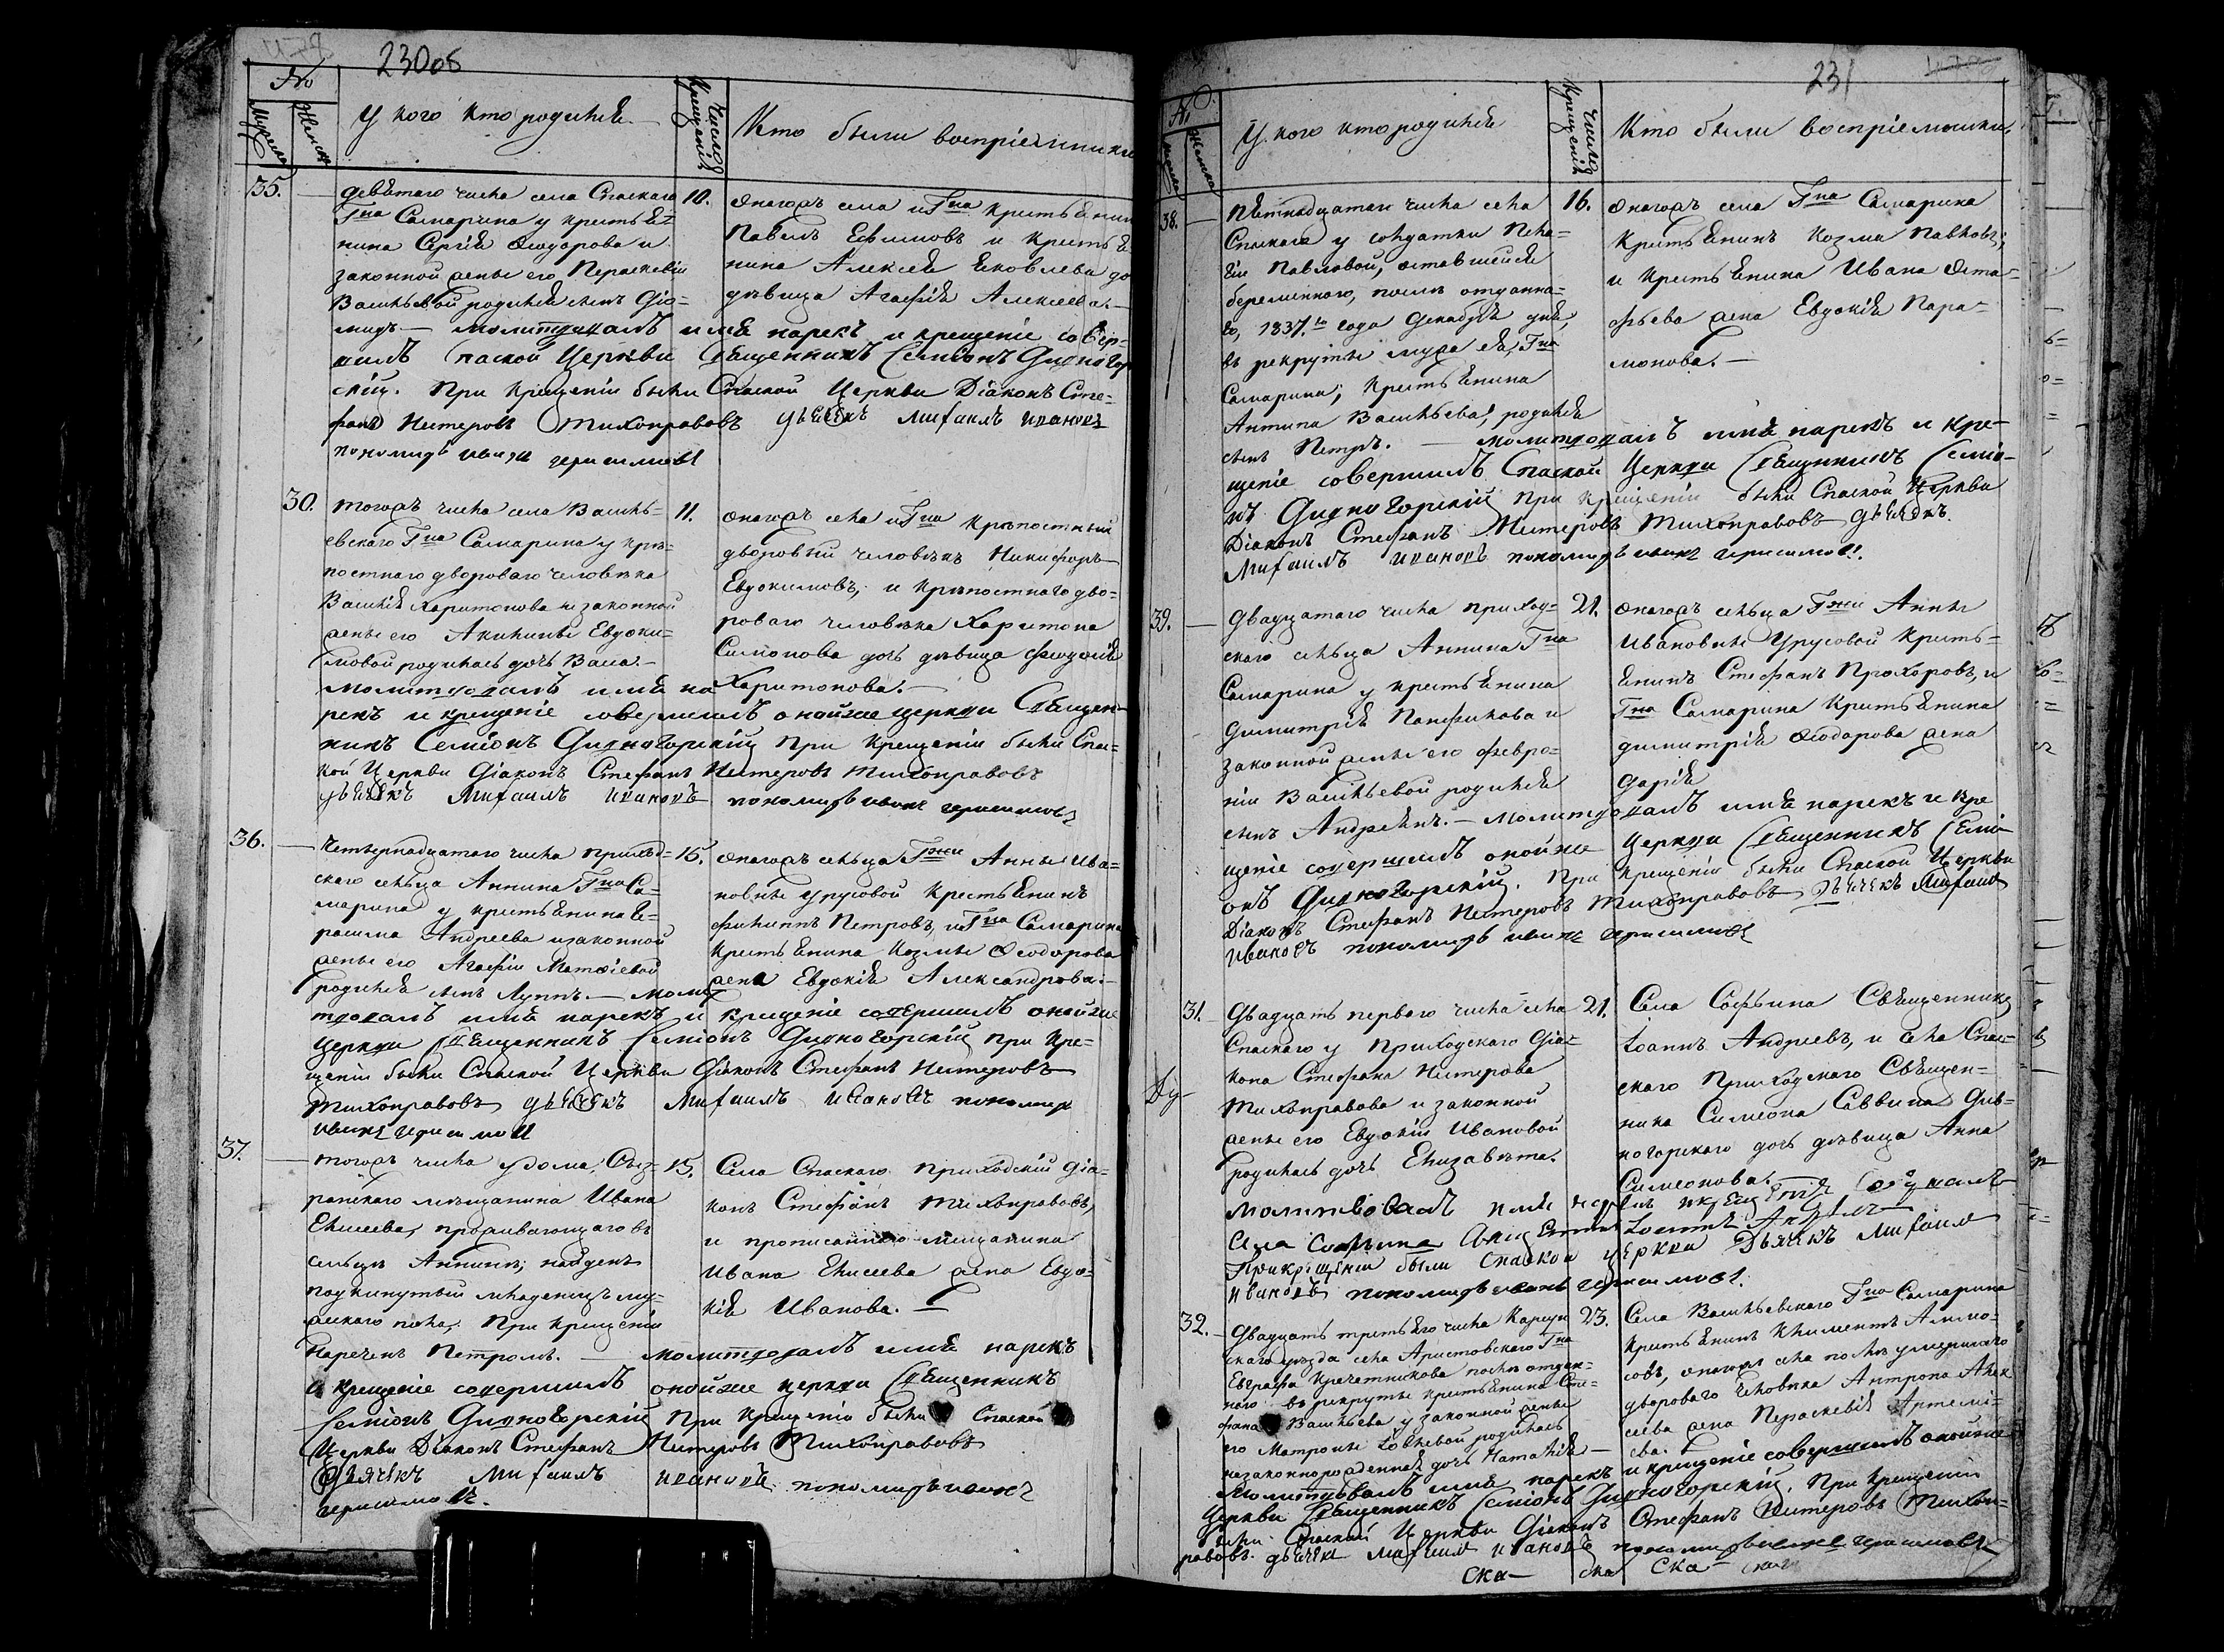 230об
№
Мужеска
Женска
У кого кто родился
Число Крещенія
Кто были воспріемники
35.
девятаго числа села Спаскаго
Гна Самарина у кресть я=
нина Сергія Ѳеодорова и
законной жены его Параскевіи
Васильевой родился сынъ Діо=
мидъ. — молитвовалъ имя нарекъ и крещеніе совер=
шилъ Спаской Церкви Священникъ Семіонъ Дивногор
скій. При крещеніи были Спаской Церкви Діаконъ Сте=
фанъ Нестеровъ Тихонравовъ дьячекъ Михаилъ Ивановъ
пономарь Иванъ Герасимовъ
10.
Онагожъ села и Гна крестьянин
Павелъ Ефимовъ и крестья
нина Алексея Яковлева до
дѣвица Агафія Алексеева. —
30.
тогожъ числа села Василь=
евскаго Гна Самарина у крѣ=
постнаго дворового человѣка
Василія Харитонова и законной
жены его Акилины Евдоки=
мовой родилась дочь Васса. —
молитвовалъ имя на
рекъ и крещеніе совершилъ онойже церкви Священ
никъ Семіонъ Дивногорскій при крещеніи были Спас=
кой Церкви Діаконъ Стефанъ Нестеровъ Тихонравовъ
дьячекъ Михаилъ Ивановъ пономарь Иванъ Герасимовъ
11.
онагожъ села и Гна крѣпостный
дворовый человѣкъ Никифоръ
Евдокимовъ, и крѣпостнаго дво=
роваго человѣка Харитона
Симонова дочь дѣвица Феодосія
Харитонова. —
36.
Четвернадцатаго числа приход=
скаго сельца Аннина Гна Са=
марина у крестьянина Ге=
расима Андреева и законной
жены его Агафіи Матѳіевой
родился сынъ Луппъ. — моли
твовалъ имя нарекъ и крещеніе совершилъ онойже
церкви Священникъ Семіонъ Дивногорскій при кре=
щеніи были Спаской Церкви Діаконъ Стефанъ Нестеровъ
Тихонравовъ дьячекъ Михаилъ Ивановъ пономарь
Иванъ Герасимовъ
15.
онагожъ сельца Гжи Анны Ива=
новны Урусовой крестьянинъ
Филиппъ Петровъ, и Гна Самарина
крестьянина Козмы Ѳеодорова
жена Евдокія Александрова. —
37.
тогожъ числа у дома, Сыз=
ранскаго мѣщанина Ивана
Елисеева, проживающаго въ
сельцѣ Аннинѣ, найденъ
подкинутый младенецъ му=
жескаго пола, при крещеніи
нареченъ Петромъ. — молитвовалъ имя нарекъ
и крещеніе совершилъ онойже церкви Священникъ
Семіонъ Дивногорскій При крещеніи были Спаской
Церкви Діаконъ Стефанъ Нестеровъ Тихонравовъ
Дьячекъ Михаилъ Ивановъ пономарь Иванъ
Герасимовъ.
15.
Села Спаскаго приходскій діа=
конъ Стефанъ Тихонравовъ,
и прописаннаго мещанина
Ивана Елисеева жена Евдо=
кія Иванова. —
231
№
Мужеска
Женска
У кого кто родился
Число Крещенія
Кто были воспріемники
38.
Пятнадцатаго числа села
Спаскаго у солдатки Пела=
гіи Павловой, оставшейся
беременною, после отданна=
го, 1837.го года Декабря дня,
въ рекруты мужа ея, Гна
Самарина, крестьянина
Антипа Васильева, родился
сынъ Петръ. — молитвовалъ имя нарекъ и кре-
щеніе совершилъ Спаской Церкви Священникъ Семіо-
нъ Дивногорскій при крещеніи были Спаской Церкви
Діаконъ Стефанъ Нестеровъ Тихонравовъ дьячекъ
Михаилъ Ивановъ пономарь Иванъ Герасимовъ.
16.
онагожъ села Гна Самарина
крестьянинъ Козма Павловъ,
и крестьянина Ивана Оста=
фьева жена Евдокія Пара=
монова. —
39.
Двадцатаго числа приход=
скаго сельца Аннина Гна
Самарина у крестьянина
Димитрія Панфилова и
законной жены его Февро=
ніи Васильевой родился
сынъ Андреянъ. — молитвовалъ имя нарекъ и кре
щеніе совершилъ онойже Церкви Священникъ Семі
онъ Дивногорскій. При крещеніи были Спаской Церкви
Діаконъ Стефанъ Нестеровъ Тихонравовъ дьячекъ Михаилъ
Ивановъ пономарь Иванъ Герасимовъ
21.
онагожъ сельца Гжи Анны
Ивановны Урусовой кресть=
янинъ Стефанъ Прохоровъ, и
Гна Самарина крестьянина
Димитрія Ѳеодорова жена
Дарія
31.
Двадцать перваго числа села
Спаскаго у приходскаго Діа=
кона Стефана Нестерова
Тихонравова и законной
жены его Евдокіи Ивановой
родилась дочь Елизавета.
молитвовалъ имя нарекъ и крещеніе совершалъ
Села Софьина Священникъ Іоаннъ Андреевъ
При крещеніи были Спаской церкви Дьячекъ Михаилъ
Ивановъ пономарь Иванъ Герасимовъ.
21.
Села Софьина Священникъ
Іоаннъ Андреевъ, и села Спас=
скаго приходскаго Священ=
ника Симеона Саввина Див=
ногорскаго дочь дѣвица Анна
Симеонова.
32.
Двадцать третьяго числа Карсун
скаго уѣзда села Аристовскаго Гна
Евграфа Кречетникова после отдан=
наго въ рекруты крестьянина Сте=
фана Васильева у законной жены
его Матроны Іовлевой родилась
незаконнорожденная дочь Наталія —
молитвовалъ имя нарекъ и крещеніе совершилъ онойже
Церкви Священникъ Семіонъ Дивногорскій. При крещеніи
были Спаской Церкви Діаконъ Стефанъ Нестеровъ Тихон=
равовъ. дьячекъ Михаилъ Ивановъ пономарь Иванъ Герасимовъ
23.
Села Васильевскаго Гна Самарина
крестьянинъ Климентъ Аммо=
совъ, онагожъ села послѣ умершаго
двороваго человѣка Антропа Алек
сеева жена Параскевія Артемі=
ева.
Ска— ска Ска—